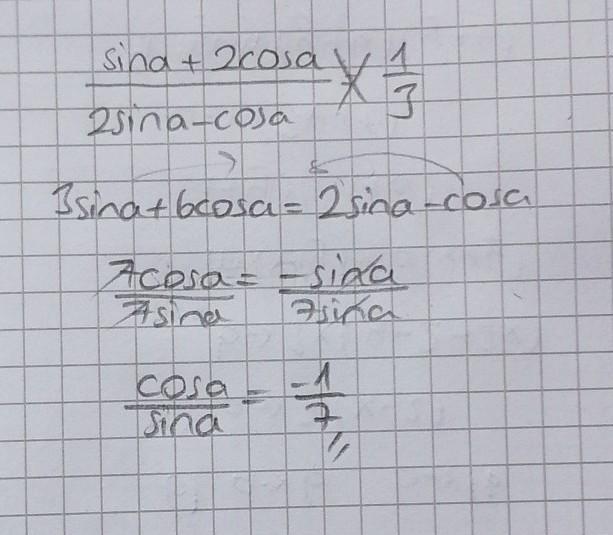 sina + 2cosa / 2sina - cosa × 1/3
3sina + 6cosa = 2sina - cosa
7cosa / 7sina = -sina / 7sina
cosa / sina = -1 / 7 //